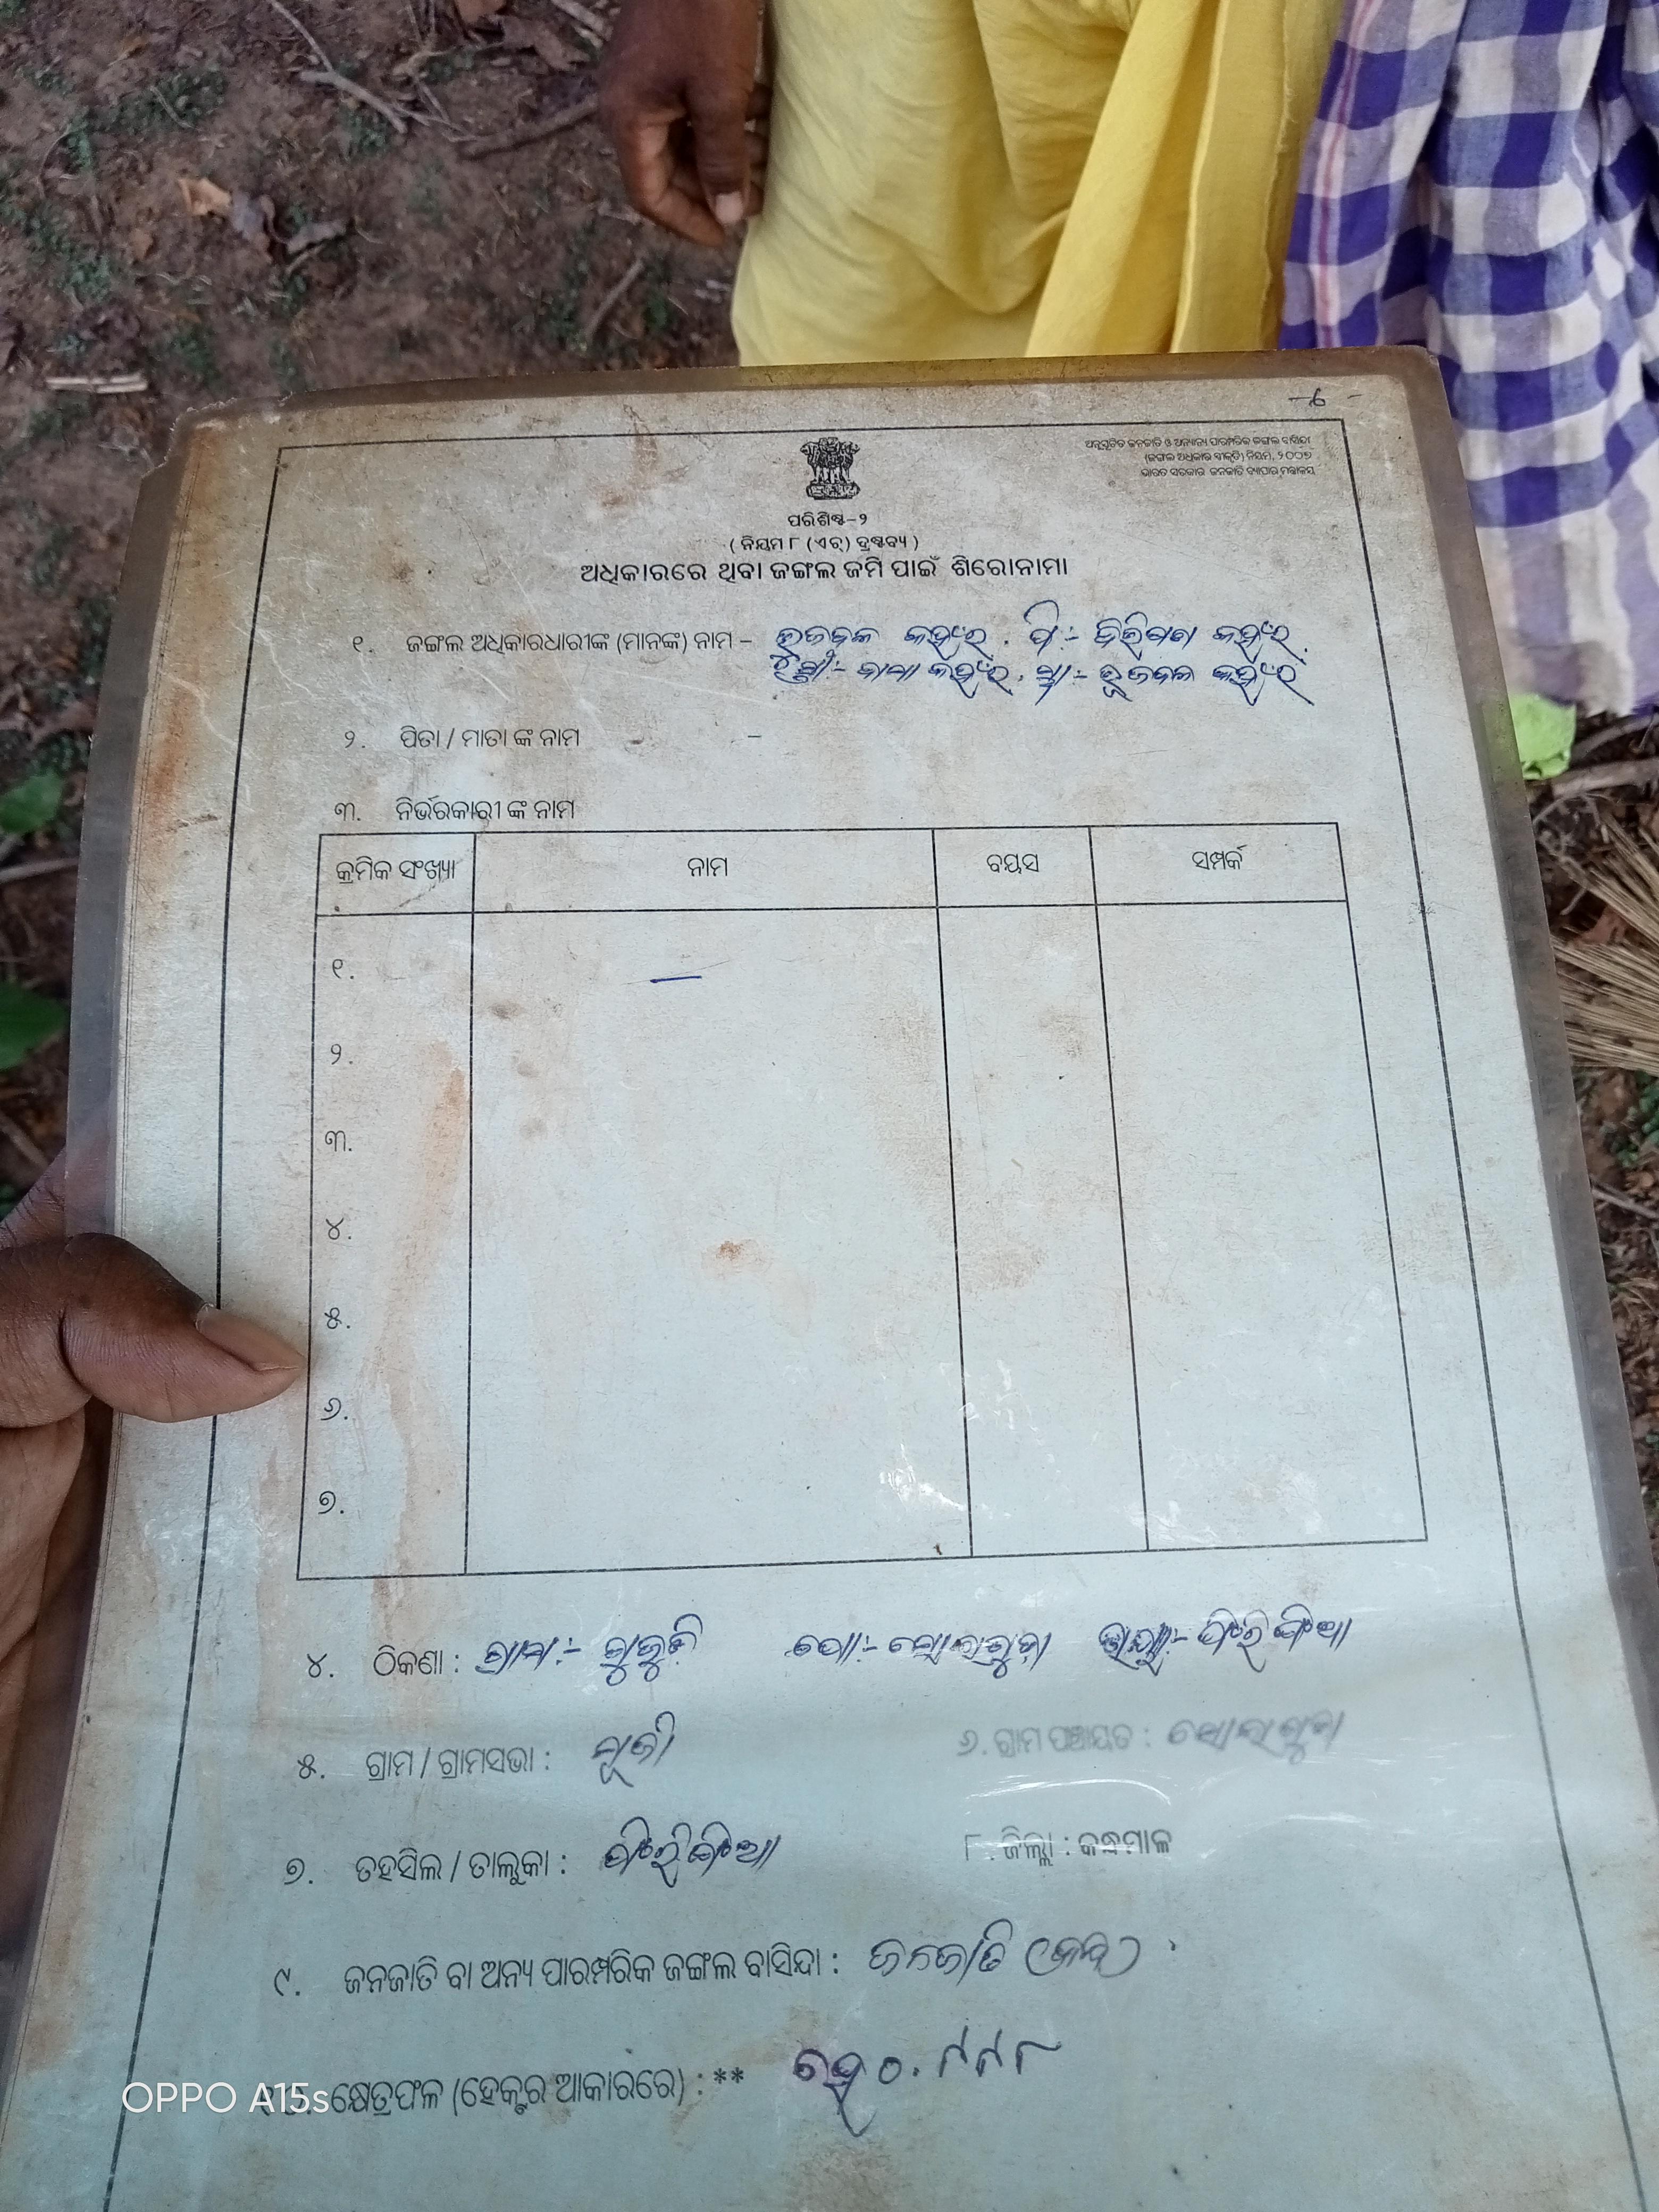 ଅନୁସୂଚିତ ଜନଜାତି ଓ ଅନ୍ୟାନ୍ୟ ପାରମ୍ପରିକ ଜଙ୍ଗଲ ବାସିନ୍ଦା
(ଜଙ୍ଗଲ ଅଧିକାର ସ୍ୱୀକୃତି) ନିୟମ, ୨୦୦୭
ଭାରତ ସରକାର ଜନଜାତି ବ୍ୟାପାର ମନ୍ତ୍ରାଳୟ
ପରିଶିଷ୍ଟ-୨
( ନିୟମ ୮ (ଏଚ୍) ଦ୍ରଷ୍ଟବ୍ୟ )
ଅଧିକାରରେ ଥିବା ଜଙ୍ଗଲ ଜମି ପାଇଁ ଶିରୋନାମା
୧. ଜଙ୍ଗଲ ଅଧିକାରଧାରୀଙ୍କ (ମାନଙ୍କ) ନାମ – କହଁର . ପି:- କହଁର .
ସ୍ତ୍ରୀ:- କହଁର , ସ୍ୱା:- କହଁର
୨. ପିତା / ମାତା ଙ୍କ ନାମ –
୩. ନିର୍ଭରକାରୀ ଙ୍କ ନାମ
କ୍ରମିକ ସଂଖ୍ୟା ନାମ ବୟସ ସମ୍ପର୍କ
୧. —
୨.
୩.
୪.
୫.
୬.
୭.
୪. ଠିକଣା : ଗ୍ରାମ:- ପୋ:- ଫିରିଙ୍ଗିଆ
୫. ଗ୍ରାମ / ଗ୍ରାମସଭା : ୬. ଗ୍ରାମ ପଞ୍ଚାୟତ :
୭. ତହସିଲ / ତାଲୁକା : ଫିରିଙ୍ଗିଆ ୮. ଜିଲ୍ଲା : କନ୍ଧମାଳ
୯. ଜନଜାତି ବା ଅନ୍ୟ ପାରମ୍ପରିକ ଜଙ୍ଗଲ ବାସିନ୍ଦା : ଜନଜାତି (କନ୍ଧ)
୧୦. କ୍ଷେତ୍ରଫଳ (ହେକ୍ଟର ଆକାରରେ) : **
OPPO A15s